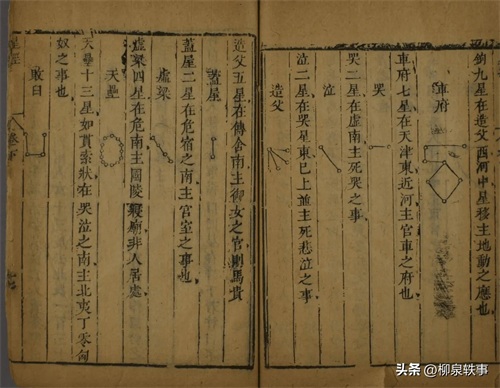 鉤九星在造父西河中星移主地動之應也
車府
車府七星在天津東近河主官車之府也
哭
哭二星在虛南主死哭之事
泣
泣二星在哭星東已上並主死悲泣之事
造父
造父五星在傳舍南主御女之官則馬貴
蓋屋
蓋屋二星在危宿之南主官室之事也
虛梁
虛梁四星在危南主園陵寢廟非人居處
天壘
天壘十三星如貫索狀在哭泣之南主北夷丁零匈
奴之事也
敗臼
星經
頭条 @柳泉轶事